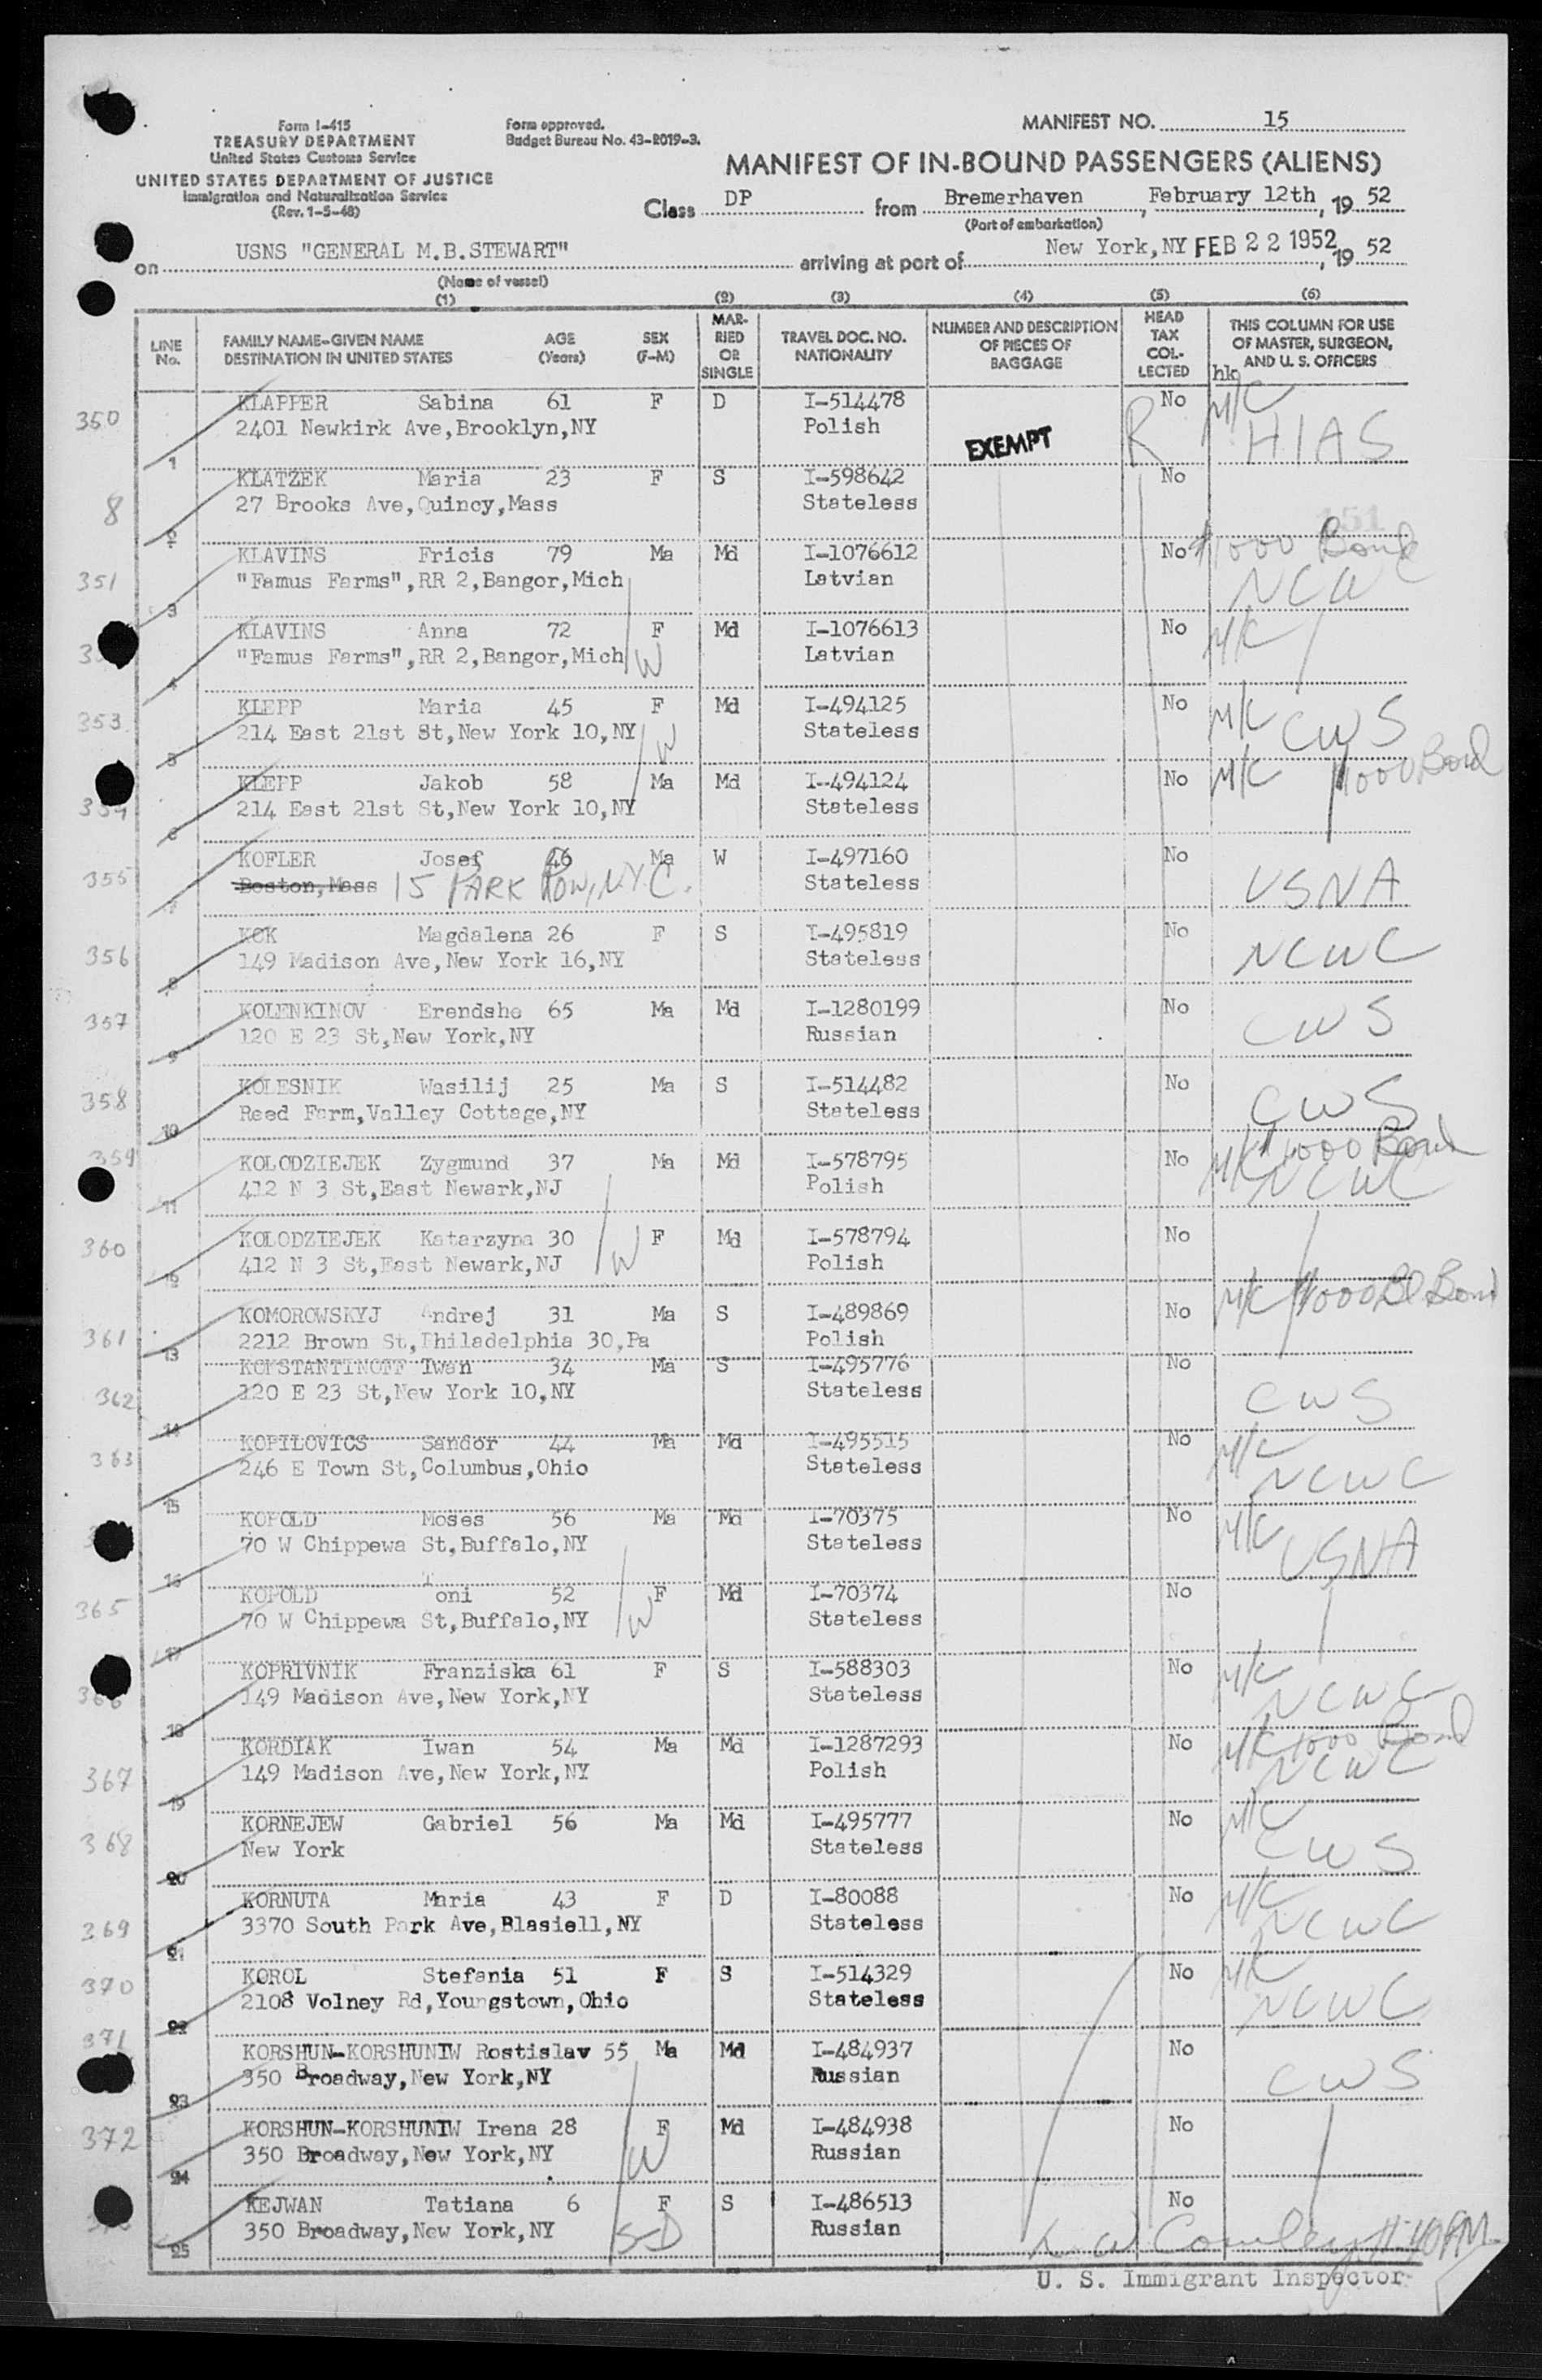 Form I-415
TREASURY DEPARTMENT
United States Customs Service
UNITED STATES DEPARTMENT OF JUSTICE
Immigration and Naturalization Service
(Rev. 1-5-48)
Form approved.
Budget Bureau No. 43-R019-3.
MANIFEST NO. 15
MANIFEST OF IN-BOUND PASSENGERS (ALIENS)
Class DP from Bremerhaven, February 12th, 19 52
(Port of embarkation)
on USNS "GENERAL M.B.STEWART" arriving at port of New York,NY FEB 22 1952, 19 52
(Name of vessel)
(1) (2) (3) (4) (5) (6)
LINE No. FAMILY NAME-GIVEN NAME DESTINATION IN UNITED STATES AGE (Years) SEX (F-M) MARRIED OR SINGLE TRAVEL DOC. NO. NATIONALITY NUMBER AND DESCRIPTION OF PIECES OF BAGGAGE HEAD TAX COLLECTED THIS COLUMN FOR USE OF MASTER, SURGEON, AND U. S. OFFICERS
hk
350 KLAPPER Sabina 61 F D I-514478 No M/C
2401 Newkirk Ave,Brooklyn,NY Polish EXEMPT R HIAS
1
KLATZEK Maria 23 F S I-598642 No
8 27 Brooks Ave,Quincy,Mass Stateless
2
KLAVINS Fricis 79 Ma Md I-1076612 No $1000 Bond
351 "Famus Farms",RR 2,Bangor,Mich Latvian NCW
3
KLAVINS Anna 72 F Md I-1076613 No M/C
"Famus Farms",RR 2,Bangor,Mich W Latvian
4
KLEPP Maria 45 F Md I-494125 No M/C CWS
353 214 East 21st St,New York 10,NY W Stateless
5
KLEPP Jakob 58 Ma Md I-494124 No M/C 1000 Bond
354 214 East 21st St,New York 10,NY Stateless
6
KOFLER Josef 46 Ma W I-497160 No
355 Boston,Mass 15 PARK ROW, N.Y.C. Stateless USNA
7
KOK Magdalena 26 F S I-495819 No
356 149 Madison Ave,New York 16,NY Stateless NCWC
8
KOLENKINOV Erendshe 65 Ma Md I-1280199 No
357 120 E 23 St,New York,NY Russian CWS
9
KOLESNIK Wasilij 25 Ma S I-514482 No
358 Reed Farm,Valley Cottage,NY Stateless CWS
10
359 KOLODZIEJEK Zygmund 37 Ma Md I-578795 No M/C $1000 Bond
412 N 3 St,East Newark,NJ Polish NCWC
11
KOLODZIEJEK Katarzyna 30 F Md I-578794 No
360 412 N 3 St,East Newark,NJ W Polish
12
KOMOROWSKYJ Andrej 31 Ma S I-489869 No M/C 1000 Bl Bond
361 2212 Brown St,Philadelphia 30,Pa Polish
13
KONSTANTINOFF Iwan 34 Ma S I-495776 No
362 120 E 23 St,New York 10,NY Stateless CWS
14
KOPILOVICS Sandor 44 Ma Md I-495515 No M/C
363 246 E Town St,Columbus,Ohio Stateless NCWC
15
KOPOLD Moses 56 Ma Md I-70375 No M/C
70 W Chippewa St,Buffalo,NY Stateless USNA
16
KOPOLD Toni 52 F Md I-70374 No
365 70 W Chippewa St,Buffalo,NY W Stateless
17
KOPRIVNIK Franziska 61 F S I-588303 No M/C
366 149 Madison Ave,New York,NY Stateless NCWC
18
KORDIAK Iwan 54 Ma Md I-1287293 No M/C 1000 Bond
367 149 Madison Ave,New York,NY Polish NCWC
19
KORNEJEW Gabriel 56 Ma Md I-495777 No M/C
368 New York Stateless CWS
20
KORNUTA Maria 43 F D I-80088 No M/C
369 3370 South Park Ave,Blasiell,NY Stateless NCWC
21
KOROL Stefania 51 F S I-514329 No M/C
370 2108 Volney Rd,Youngstown,Ohio Stateless NCWC
22
371 KORSHUN-KORSHUNIW Rostislav 55 Ma Md I-484937 No
350 Broadway,New York,NY Russian CWS
23
KORSHUN-KORSHUNIW Irena 28 F Md I-484938 No
372 350 Broadway,New York,NY W Russian
24
KEJWAN Tatiana 6 F S I-486513 No
350 Broadway,New York,NY SD Russian
25
11:40 PM
U. S. Immigrant Inspector